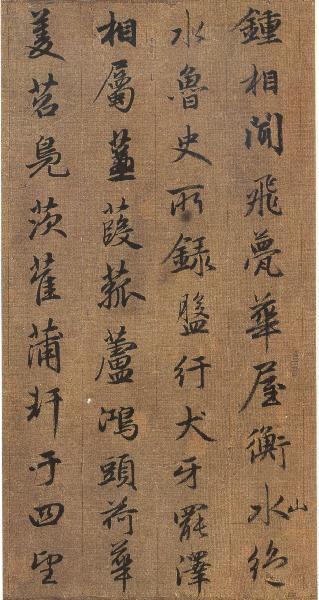 鍾相間飛甍華屋衡水山絶
水魯史所録盤行犬牙罷澤
相屬蒹葭菰蘆鴻頭荷華
菱苕鳧茨萑蒲軒于四望